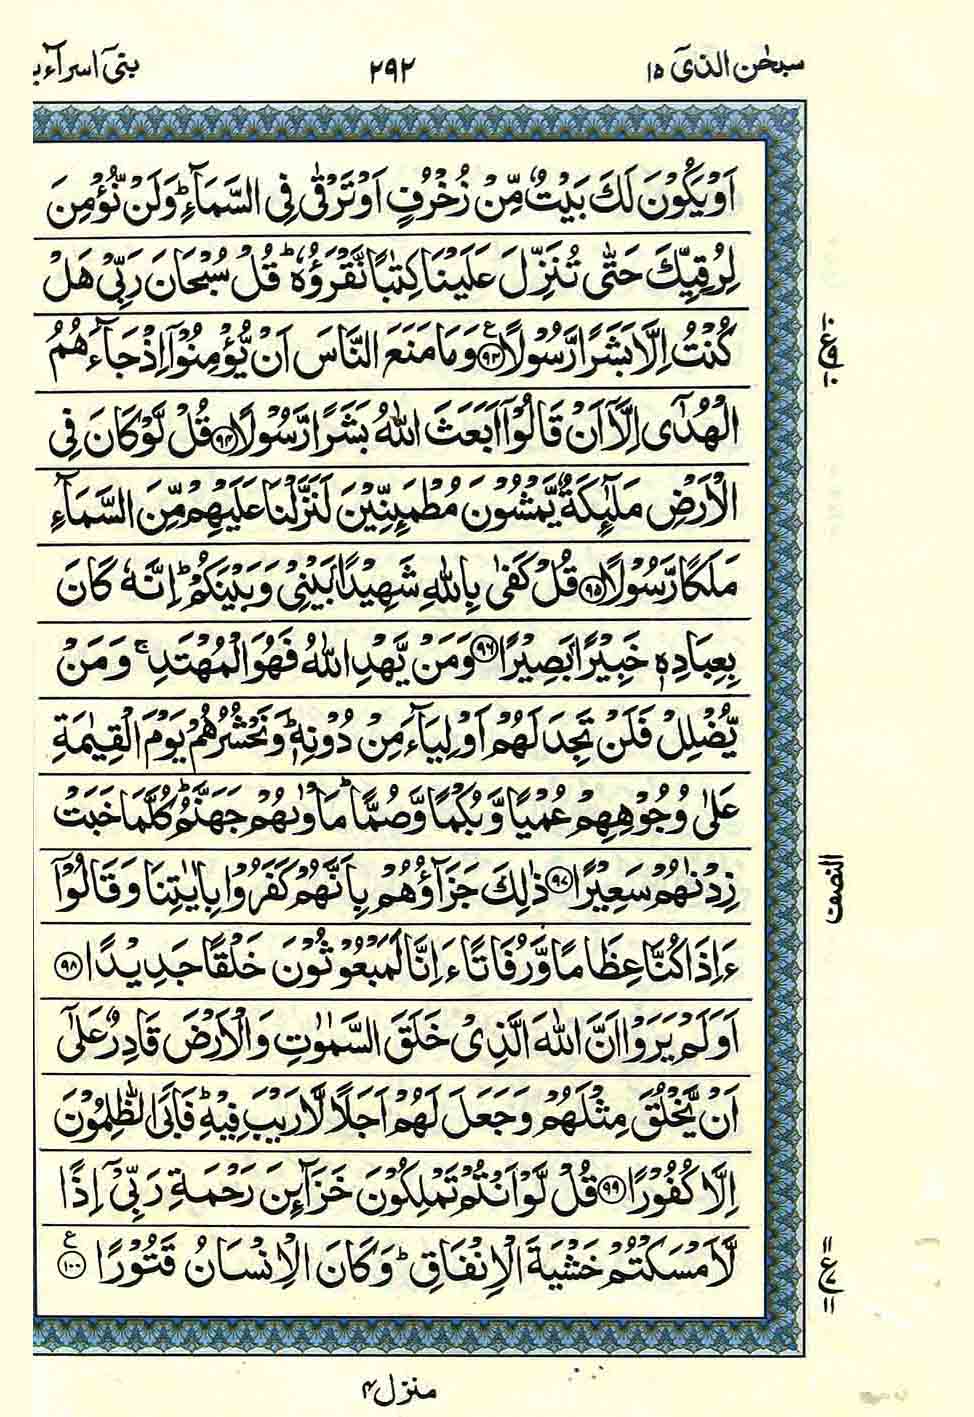 سبحٰن الذیٓ ۱۵
۲۹۲
بنیٓ اسرآءی
اَوۡ یَکُوۡنَ لَکَ بَیۡتٌ مِّنۡ زُخۡرُفٍ اَوۡ تَرۡقٰی فِی السَّمَآءِ ؕ وَلَنۡ نُّؤۡمِنَ
لِرُقِیِّکَ حَتّٰی تُنَزِّلَ عَلَیۡنَا کِتٰبًا نَّقۡرَؤُهٗ ؕ قُلۡ سُبۡحَانَ رَبِّیۡ هَلۡ
کُنۡتُ اِلَّا بَشَرًا رَّسُوۡلًا ﴿۹۳﴾ ع وَمَا مَنَعَ النَّاسَ اَنۡ یُّؤۡمِنُوۡۤا اِذۡ جَآءَهُمُ
الۡهُدٰۤی اِلَّاۤ اَنۡ قَالُوۡۤا اَبَعَثَ اللّٰهُ بَشَرًا رَّسُوۡلًا ﴿۹۴﴾ قُلۡ لَّوۡ کَانَ فِی
الۡاَرۡضِ مَلٰٓئِکَةٌ یَّمۡشُوۡنَ مُطۡمَئِنِّیۡنَ لَنَزَّلۡنَا عَلَیۡهِمۡ مِّنَ السَّمَآءِ
مَلَکًا رَّسُوۡلًا ﴿۹۵﴾ قُلۡ کَفٰی بِاللّٰهِ شَهِیۡدًۢا بَیۡنِیۡ وَ بَیۡنَکُمۡ ؕ اِنَّهٗ کَانَ
بِعِبَادِهٖ خَبِیۡرًۢا بَصِیۡرًا ﴿۹۶﴾ وَمَنۡ یَّهۡدِ اللّٰهُ فَهُوَ الۡمُهۡتَدِ ۚ وَ مَنۡ
یُّضۡلِلۡ فَلَنۡ تَجِدَ لَهُمۡ اَوۡلِیَآءَ مِنۡ دُوۡنِهٖ ؕ وَنَحۡشُرُهُمۡ یَوۡمَ الۡقِیٰمَةِ
عَلٰی وُجُوۡهِهِمۡ عُمۡیًا وَّ بُکۡمًا وَّ صُمًّا ؕ مَاۡوٰىهُمۡ جَهَنَّمُ ؕ کُلَّمَا خَبَتۡ
زِدۡنٰهُمۡ سَعِیۡرًا ﴿۹۷﴾ ذٰلِکَ جَزَآؤُهُمۡ بِاَنَّهُمۡ کَفَرُوۡا بِاٰیٰتِنَا وَ قَالُوۡۤا
ءَاِذَا کُنَّا عِظَامًا وَّ رُفَاتًا ءَاِنَّا لَمَبۡعُوۡثُوۡنَ خَلۡقًا جَدِیۡدًا ﴿۹۸﴾
اَوَلَمۡ یَرَوۡا اَنَّ اللّٰهَ الَّذِیۡ خَلَقَ السَّمٰوٰتِ وَالۡاَرۡضَ قَادِرٌ عَلٰۤی
اَنۡ یَّخۡلُقَ مِثۡلَهُمۡ وَجَعَلَ لَهُمۡ اَجَلًا لَّا رَیۡبَ فِیۡهِ ؕ فَاَبَی الظّٰلِمُوۡنَ
اِلَّا کُفُوۡرًا ﴿۹۹﴾ قُلۡ لَّوۡ اَنۡتُمۡ تَمۡلِکُوۡنَ خَزَآئِنَ رَحۡمَةِ رَبِّیۡۤ اِذًا
لَّاَمۡسَکۡتُمۡ خَشۡیَةَ الۡاِنۡفَاقِ ؕ وَ کَانَ الۡاِنۡسَانُ قَتُوۡرًا ﴿۱۰۰﴾ ع
النصف
منزل ۴